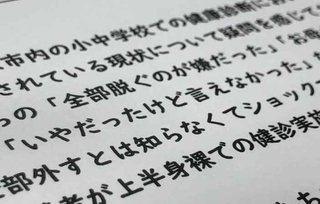 市内の小中学校での健康診断にお
されている現状について疑問を感じて
らの「全部脱ぐのが嫌だった」「お母
「いやだったけど言えなかった」
部外すとは知らなくてショック
者が上半身裸での健診実施